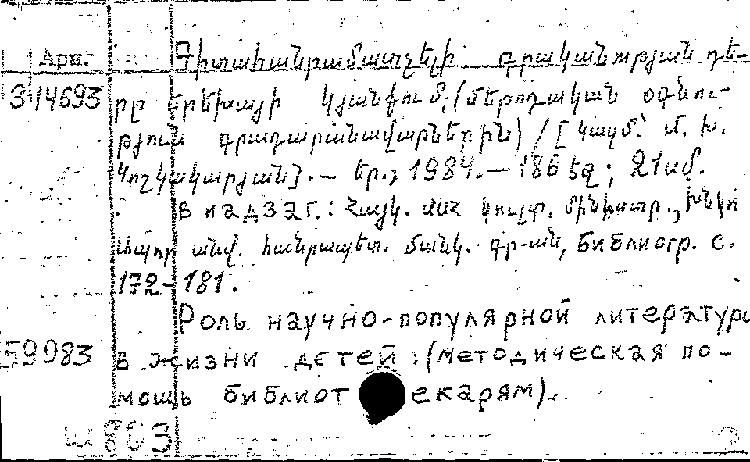 Арм. Գիտահանրամատչելի գրականության դե-
314693 րը երեխայի կյանքում. (մեթոդական օգնու-
թյուն գրադարանավարներին) / [կազմ՝ Մ. Խ.
Կոշկակարյան]. — Եր., 1984. — 186 էջ; 21 սմ.
В надзаг.: Հայկ. ՍՍՀ կուլտ. մինիստր., Խնկո
Ապոր անվ. հանրապետ. մանկ. գր-ան, Библиогр. с.
172-181.
Роль научно-популярной литературы
59983 в жизни детей: (методическая по-
мощь библиотекарям).
ш 803